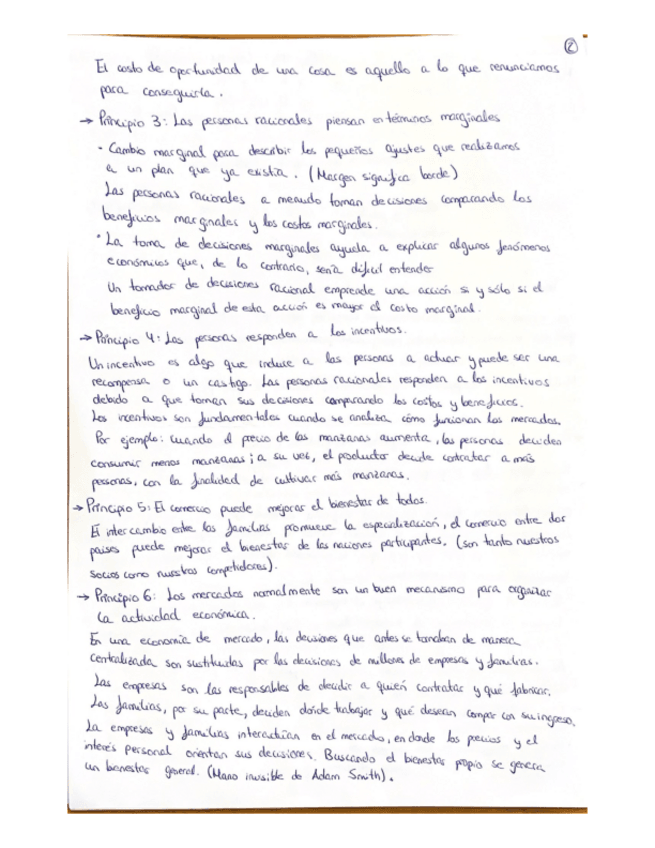 2
El costo de oportunidad de una cosa es aquello a lo que renunciamos
para conseguirla.
→ Principio 3: Las personas racionales piensan en términos marginales
· Cambio marginal para describir los pequeños ajustes que realizamos
a un plan que ya existía. (Margen significa borde)
Las personas racionales a menudo toman decisiones comparando los
beneficios marginales y los costos marginales.
· La toma de decisiones marginales ayuda a explicar algunos fenómenos
económicos que, de lo contrario, sería difícil entender
Un tomador de decisiones racional emprende una acción si y sólo si el
beneficio marginal de esta acción es mayor al costo marginal.
→ Principio 4: Las personas responden a los incentivos.
Un incentivo es algo que induce a las personas a actuar y puede ser una
recompensa o un castigo. Las personas racionales responden a los incentivos
debido a que toman sus decisiones comparando los costos y beneficios.
Los incentivos son fundamentales cuando se analiza cómo funcionan los mercados.
Por ejemplo: cuando el precio de las manzanas aumenta, las personas deciden
consumir menos manzanas; a su vez, el productor decide contratar a más
personas, con la finalidad de cultivar más manzanas.
→ Principio 5: El comercio puede mejorar el bienestar de todos.
El intercambio entre las familias promueve la especialización, el comercio entre dos
países puede mejorar el bienestar de las naciones participantes. (son tanto nuestros
socios como nuestros competidores).
→ Principio 6: Los mercados normalmente son un buen mecanismo para organizar
la actividad económica.
En una economía de mercado, las decisiones que antes se tomaban de manera
centralizada son sustituidas por las decisiones de millones de empresas y familias.
Las empresas son las responsables de decidir a quién contratar y qué fabricar.
Las familias, por su parte, deciden dónde trabajar y qué desean comprar con su ingreso.
La empresas y familias interactúan en el mercado, en donde los precios y el
interés personal orientan sus decisiones. Buscando el bienestar propio se genera
un bienestar general. (Mano invisible de Adam Smith).